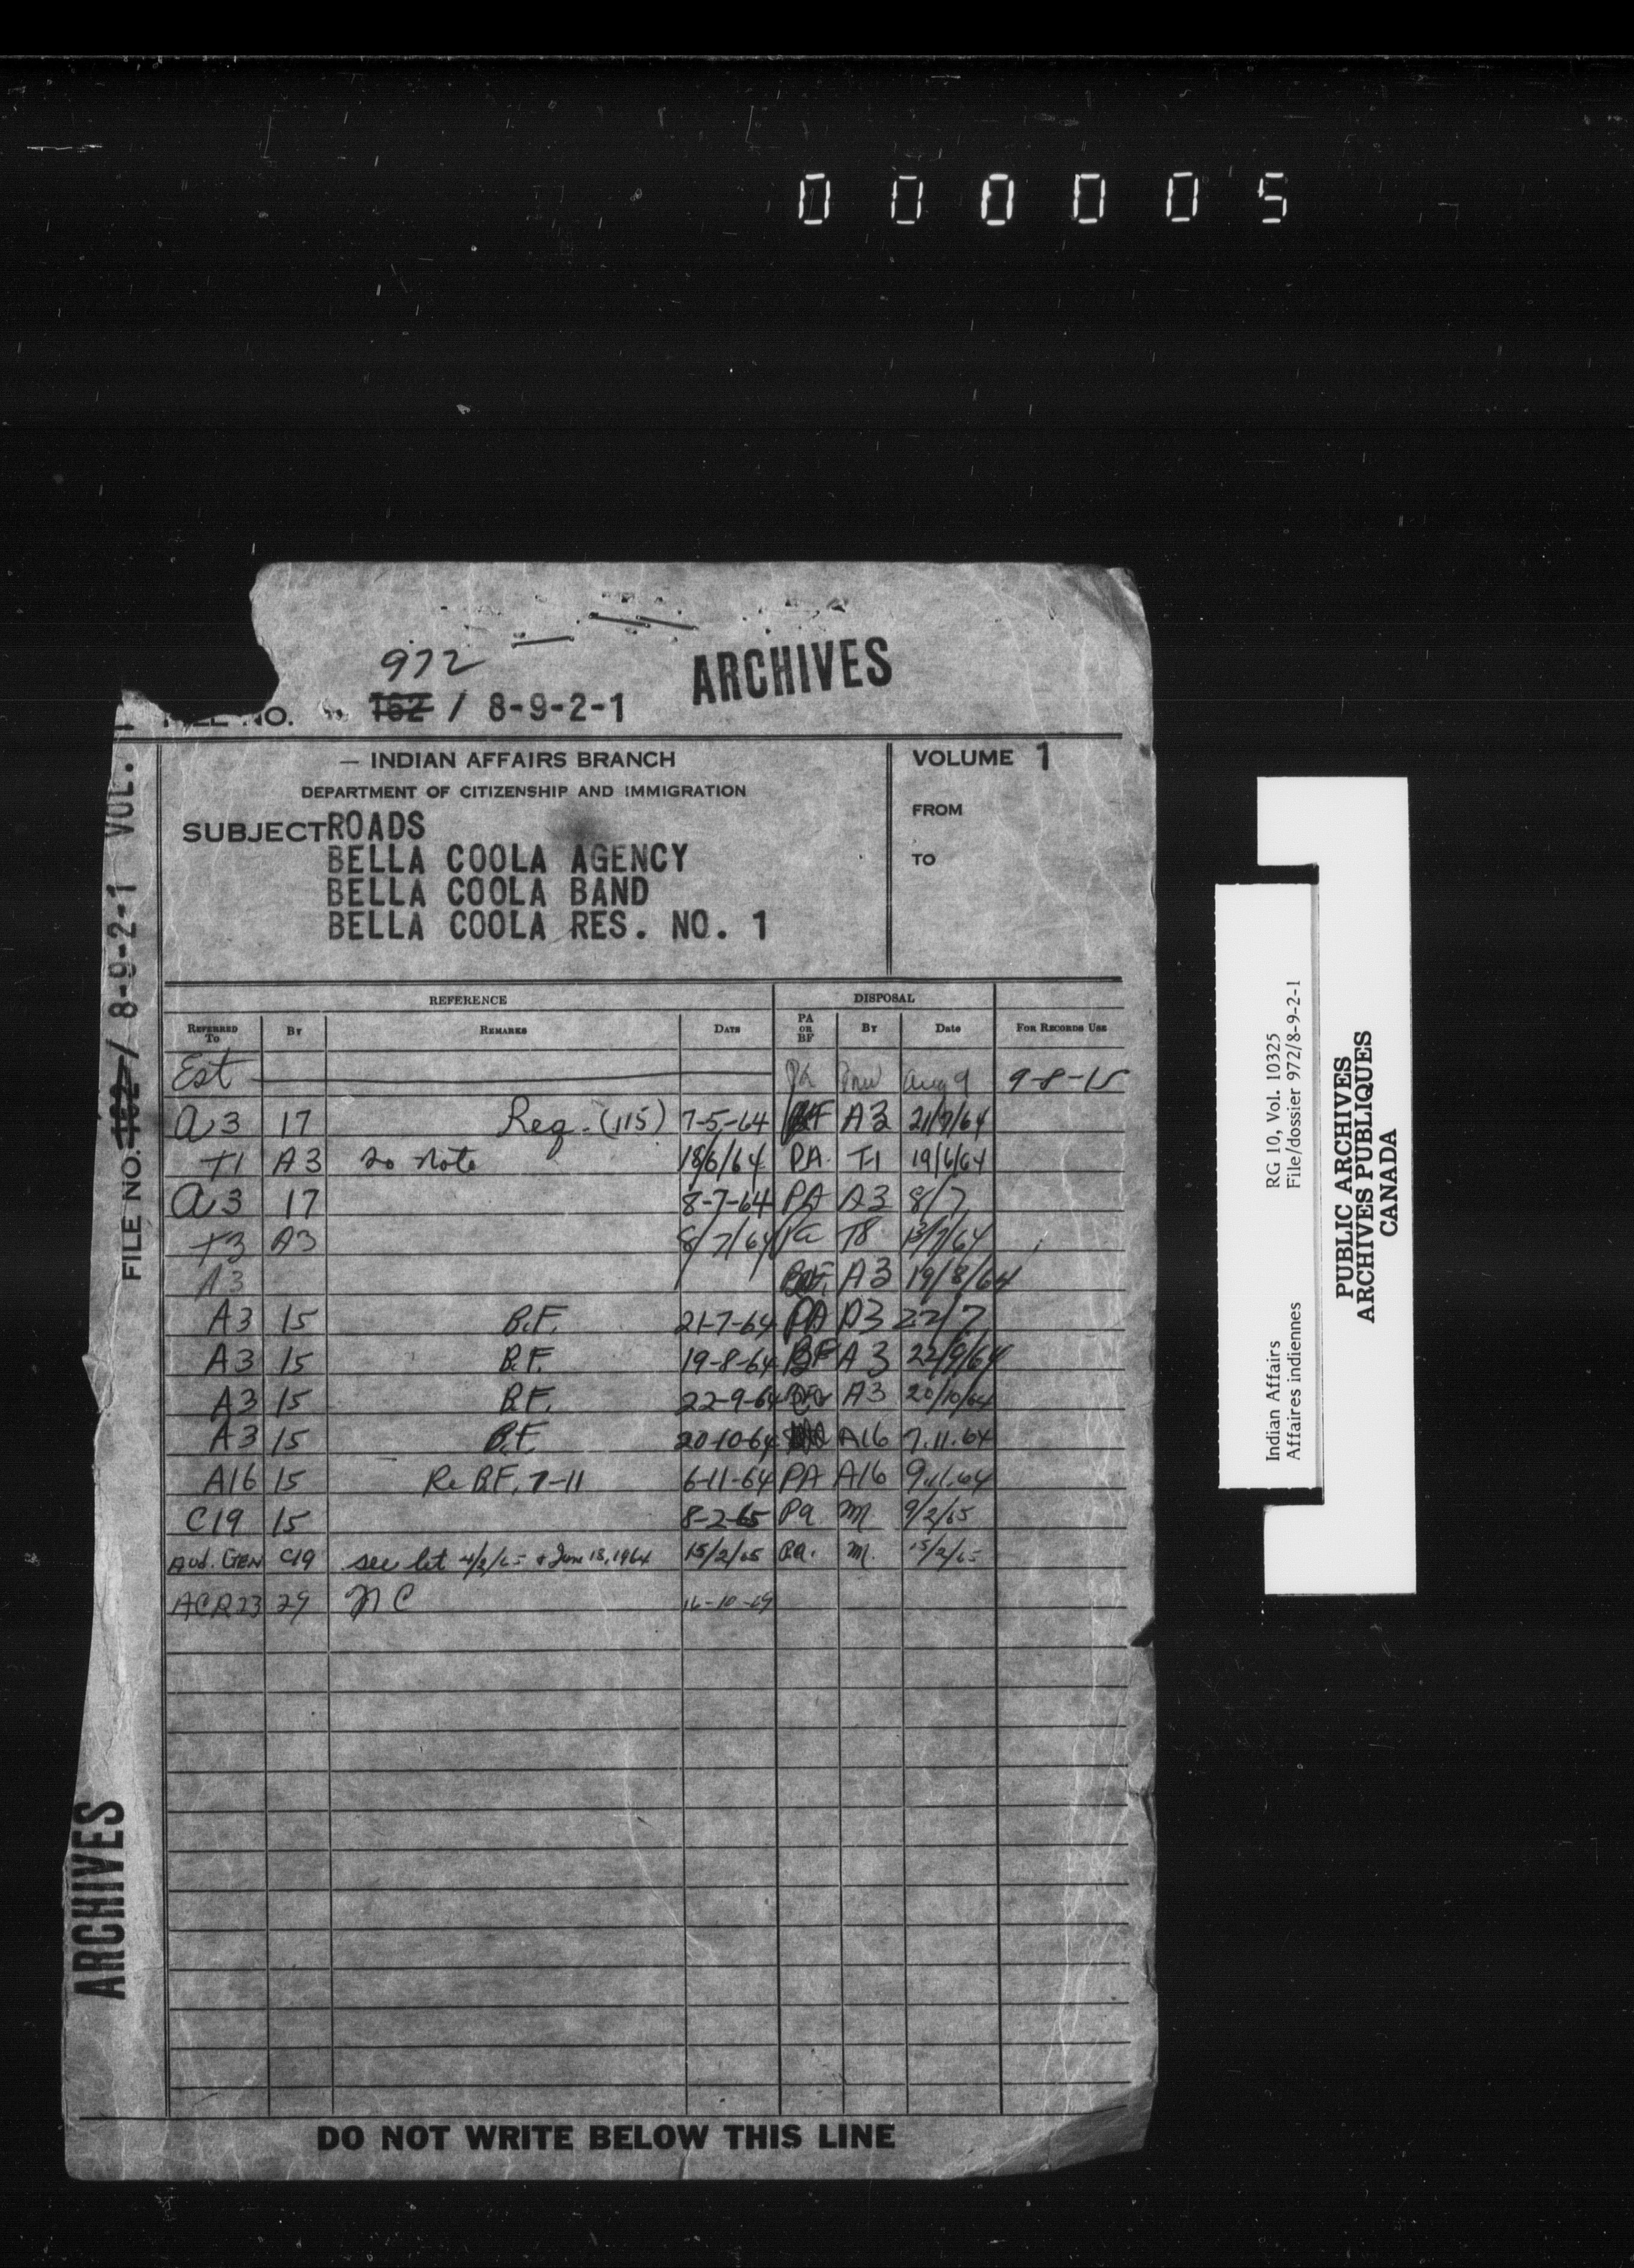 000005
972
ARCHIVES
FILE NO. 162 / 8-9-2-1
— INDIAN AFFAIRS BRANCH
DEPARTMENT OF CITIZENSHIP AND IMMIGRATION
SUBJECT ROADS
BELLA COOLA AGENCY
BELLA COOLA BAND
BELLA COOLA RES. NO. 1
VOLUME 1
FROM
TO
REFERENCE DISPOSAL
REFERRED TO BY REMARKS DATE PA OR BF BY Date FOR RECORDS USE
Est PA Aug 9 9-8-15
A3 17 Req. (115) 7-5-64 BF A3 21/7/64
T1 A3 to note 18/6/64 PA. T-1 19/6/64
A3 17 8-7-64 PA A3 8/7
T3 A3 8/7/64 Pa T8 13/7/64
A3 A3 19/8/64
A3 15 B.F. 21-7-64 PA A3 22/7
A3 15 B.F. 19-8-64 BF A3 22/9/64
A3 15 B.F. 22-9-64 A3 20/10/64
A3 15 B.F. 20-10-64 A16 7.11.64
A16 15 Re B.F. 7-11 6-11-64 PA A16 9.11.64
C19 15 8-2-65 Pa M 9/2/65
Aud. GEN C19 see let 4/2/65 & June 18, 1964 15/2/65 P.a. M. 15/2/65
ACR23 29 NC 16-10-69
DO NOT WRITE BELOW THIS LINE
FILE NO. 162 / 8-9-2-1 VOL. 1
ARCHIVES
Indian Affairs RG 10, Vol. 10325
Affaires indiennes File/dossier 972/8-9-2-1
PUBLIC ARCHIVES
ARCHIVES PUBLIQUES
CANADA